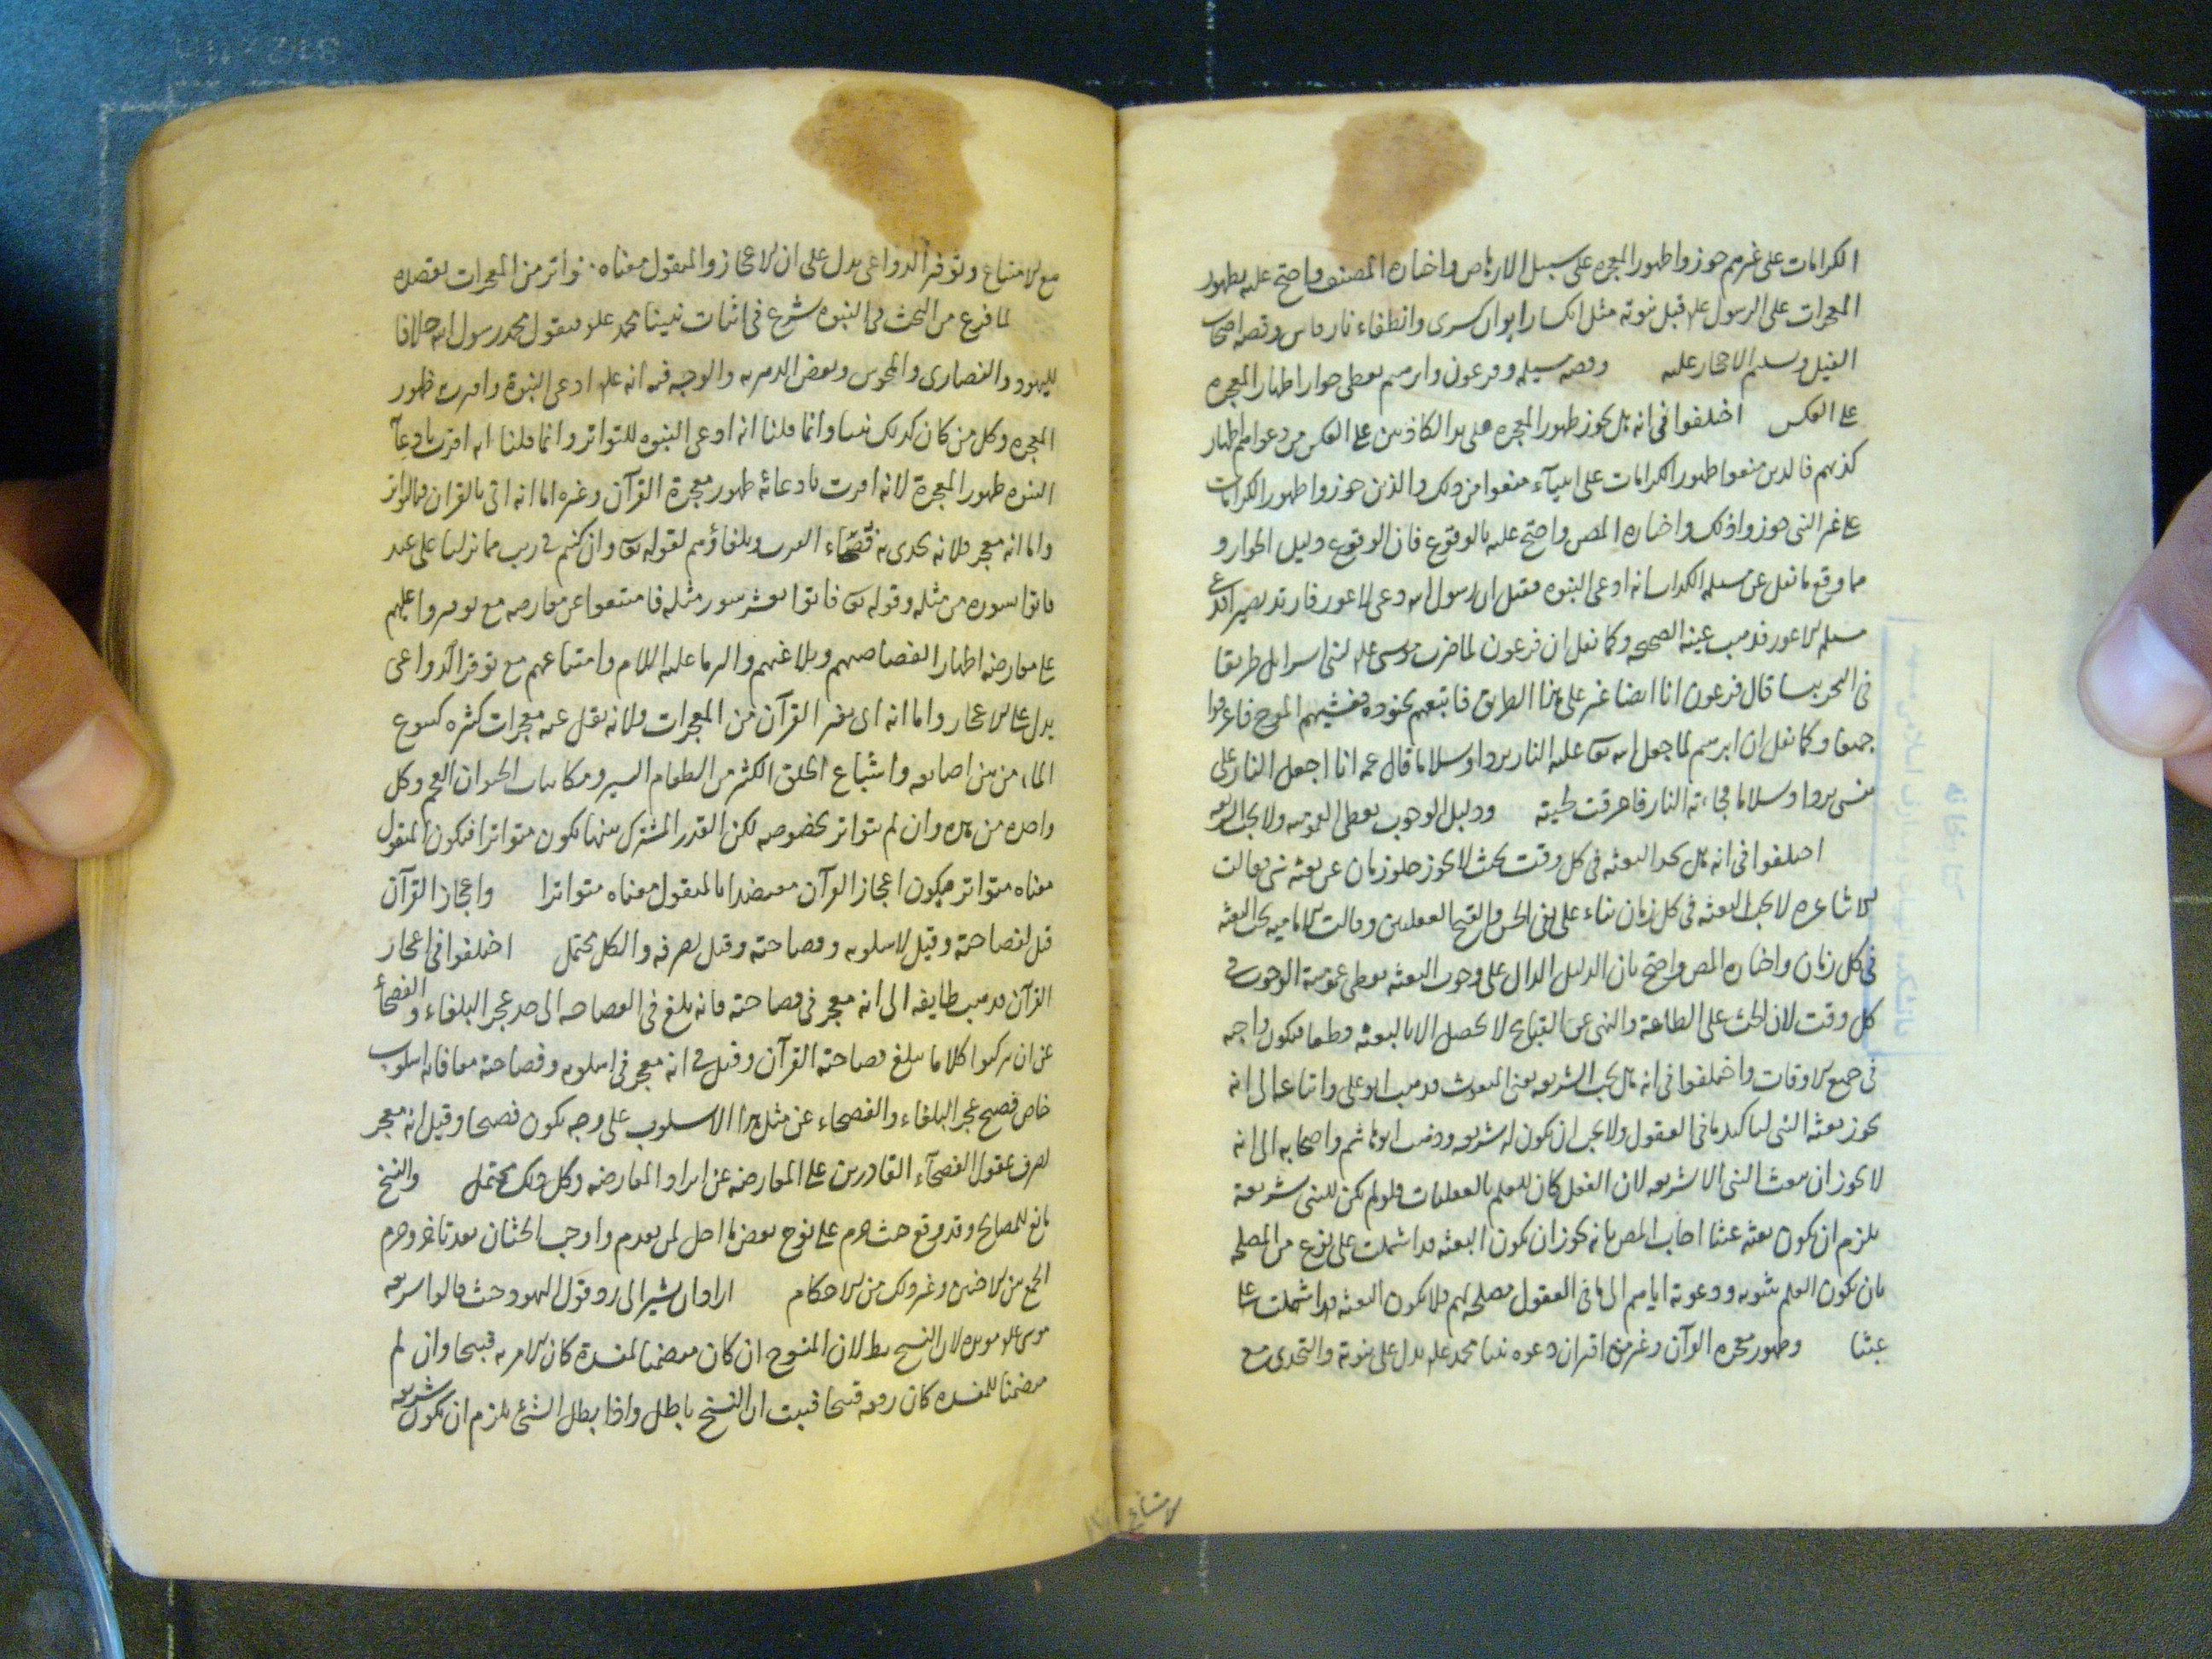 الكرامات على غيرهم جوزوا ظهور المعجزة على سبيل الارهاص واختاره المصنف واحتج عليه بظهور
المعجزات على الرسول علم قبل نبوته مثل انكسار ايوان كسرى وانطفاء نار فارس وقصة اصحاب
الفيل وتسليم الاحجار عليه وقصة مسيلمة وفرعون وابرهيم يعطى جواز اظهار المعجزة
على العكس اختلفوا فى انه هل يجوز ظهور المعجزة على يد الكاذبين على العكس من دعواهم اظهار
كذبهم فالذين منعوا ظهور الكرامات على انبيآء منعوا من ذلك والذين جوزوا ظهور الكرامات
على غير النبى جوزوا ذلك واختاره المص واحتج عليه بالوقوع فان الوقوع دليل الجواز و
مما وقع ما نقل عن مسيلمة الكذاب انه ادعى النبوة فقيل ان رسول الله دعى لاعور فارتد بصيرا فدعى
مسيلمة لاعور فذهب عينه الصحيحة وكما نقل ان فرعون لما ضرب موسى علم لبنى اسرايل طريقا
فى البحر يبسا قال فرعون انا ايضا غير على هذا الطريق فاتبعهم بجنوده فغشيهم الموج فاغرقوا
جميعا وكما نقل ان ابرهيم لما جعل الله تعا عليه النار بردا وسلاما قال عمه انا اجعل النار على
نفسى بردا وسلاما فجاءته النار فاحرقت لحيته ودليل الوجوب يعطى العمومية ولا يجب الشريعة
اختلفوا فى انه هل يجب البعثة فى كل وقت بحيث لا يجوز خلو زمان عن بعثة نبى فقالت
الاشاعرة لا يجب البعثة فى كل زمان بناء على نفى الحسن والقبح العقليين وقالت الامامية يجب البعثة
فى كل زمان واختاره المص واحتج بان الدليل الدال على وجوب البعثة يعطى عمومية الوجوب فى
كل وقت لان الحث على الطاعة والنهى عن القبايح لا يحصل الا بالبعثة وطعا فيكون واجبة
فى جميع الاوقات واختلفوا فى انه هل يجب الشريعة يعنى المبعوث فذهب ابو على واتباعه الى انه
يجوز بعثة النبى لتاكيد ما فى العقول ولا يجب ان يكون له شريعة وذهب ابو هاشم واصحابه الى انه
لا يجوز ان يبعث النبى الا بشريعة لان العقل كان للعلم بالعقليات فلو لم يكن للنبى شريعة
يلزم ان يكون بعثه عبثا اجاب المص بانه يجوز ان يكون البعثة قد اشتملت على نوع من المصلحة
بان يكون العلم بنبوته ودعوته اياهم الى ما فى العقول مصلحة لهم فلا يكون البعثة قد اشتملت على
عبثا وظهور معجزة القرآن وغيره مع اقتران دعوة نبينا محمد علم يدل على نبوته والتحدى مع
الامتناع
مع الامتناع وتوفر الدواعى يدل على ان الاعجاز والمنقول معناه تواتر من المعجزات يعضده
لما فرغ من البحث فى النبوة شرع فى اثبات نبينا محمد علم فيقول محمد رسول الله خلافا
لليهود والنصارى والمجوس وبعض الدهرية والوجه فيه انه علم ادعى النبوة واقترن ظهور
المعجزة وكل من كان كذلك نبيا وانما قلنا انه ادعى النبوة للتواتر وانما قلنا انه اقترن بادعآ
النبوة ظهور المعجزة لانه اقترنت بادعائه ظهور معجزة القرآن وغيره اما انه اتى بالقران فبالتواتر
واما انه معجز فلانه تحدى به فصحاء العرب وبلغاؤهم لقوله تعا وان كنتم فى ريب مما نزلنا على عبدنا
فاتوا بسورة من مثله وقوله تعا فاتوا بعشر سور مثله فامتنعوا عن معارضه مع توفر دواعيهم
على معارضه اظهارا لفصاحتهم وبلاغتهم والزاما عليه السلام وامتناعهم مع توفر الدواعى
يدل على الاعجاز واما انه اى بغير القرآن من المعجزات فلانه نقل عنه معجزات كثيرة كنبوع
الماء من بين اصابعه واشباع الخلق الكثير من الطعام اليسير ومكالمات الحيوان العجم وكل
واحده من هذه وان لم يتواتر بخصوصه لكن القدر المشترك بينها يكون متواترا فيكون المنقول
معناه متواتر فيكون اعجاز القرآن معتضدا بالمنقول معناه متواترا واعجاز القرآن
قيل لفصاحته وقيل لاسلوبه وفصاحته وقيل للصرفه والكل محتمل اختلفوا فى اعجاز
القرآن فذهب طايفة الى انه معجز فى فصاحته فانه بلغ فى الفصاحه الى حد عجز البلغاء والفصحآء
عن ان يركبوا كلاما يبلغ فصاحة القرآن وقيل فى انه معجز فى اسلوبه وفصاحته معا فانه اسلوب
خاص فصيح عجز البلغاء والفصحاء عن مثل هذا الاسلوب على وجه يكون فصيحا وقيل انه معجز
لصرف عقول الفصحآء القادرين على المعارضه عن ايراد المعارضه وكل ذلك محتمل والنسخ
تابع للمصالح وقد وقع حيث حرم على نوح بعض ما احل لمن تقدم واوجب الختان بعد تاخره وحرم
الجمع بين الاختين وغير ذلك من الاحكام اراد ان يشير الى رد قول اليهود حيث قالوا شريعة
موسى علم مؤبده لان النسخ بط لان المنسوخ ان كان متضمنا لمفسدة كان الامر به قبيحا وان لم
متضمنا للمفسده كان رفعه قبيحا فثبت ان النسخ باطل واذا بطل الشئ يلزم ان يكون شريعة